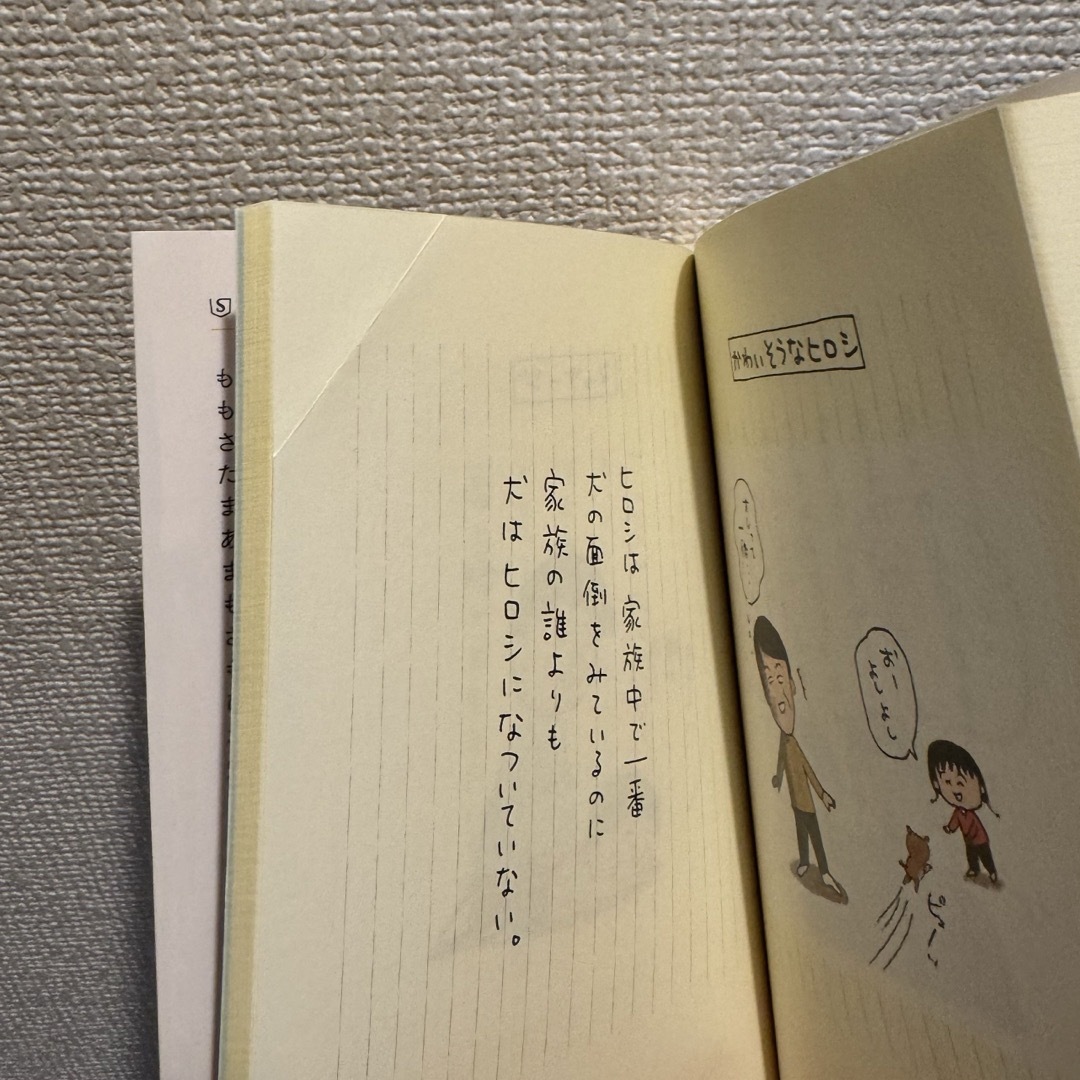 かわいそうなヒロシ
おー
よしよし
ピューッ
ヒロシは家族中で一番
犬の面倒をみているのに
家族の誰よりも
犬はヒロシになついていない。
S